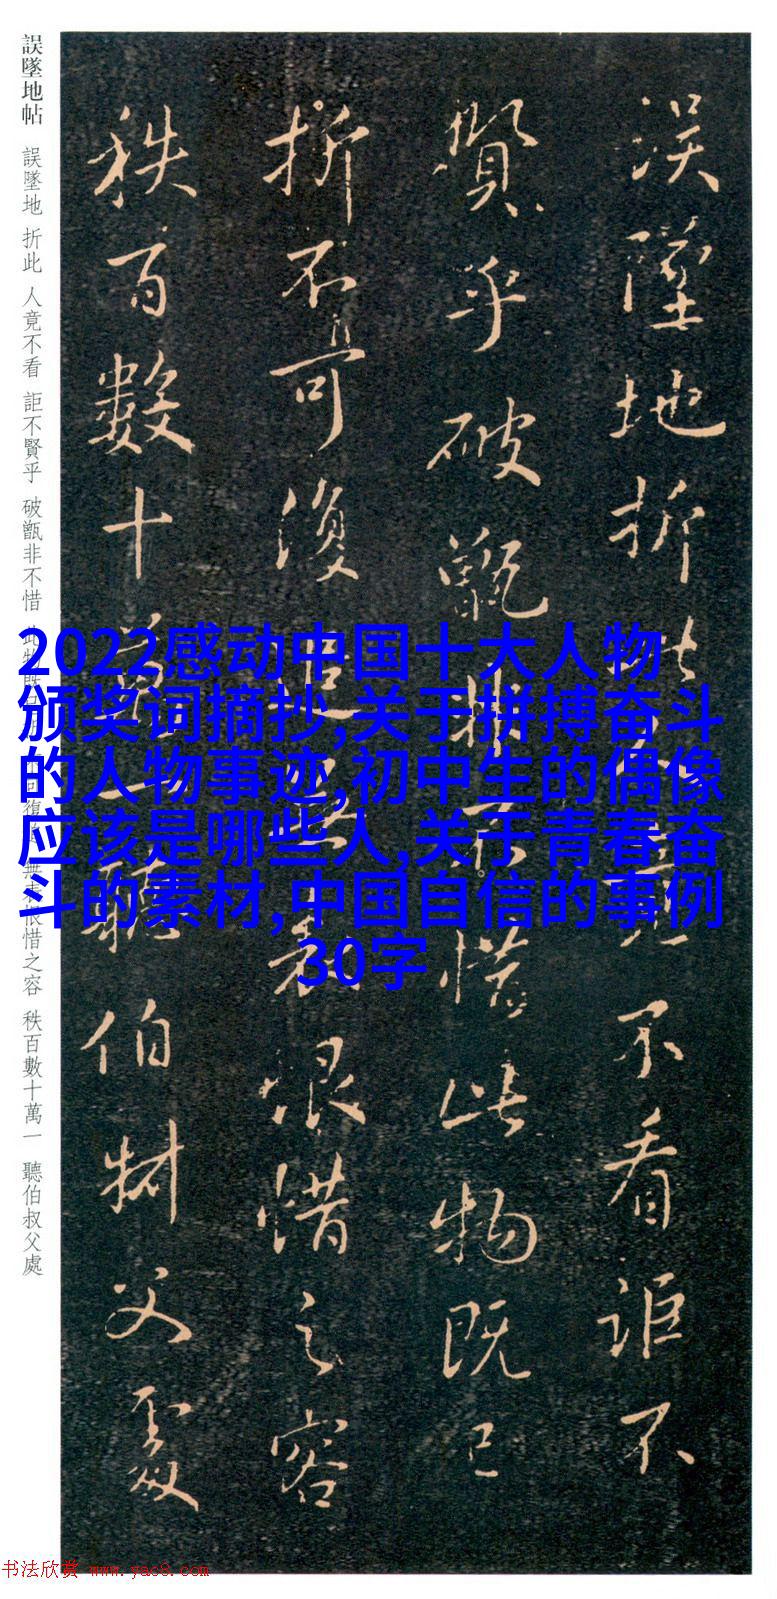 誤墜地折此人竟不看詎不
賢乎破甑非不惜此物既已
折不可復追無表恨惜之容
秩百數十萬一聽伯叔父處
誤墜地帖 誤墜地 折此 人竟不看 詎不賢乎 破甑非不惜 此物既已 可復 無表恨惜之容 秩百數十萬一 聽伯叔父處
2022感动中国十大人物
颁奖词摘抄,关于拼搏奋斗
的人物事迹,初中生的偶像
应该是哪些人,关于青春奋
斗的素材,中国自信的事例
30字
书法欣赏 www.yac8.com